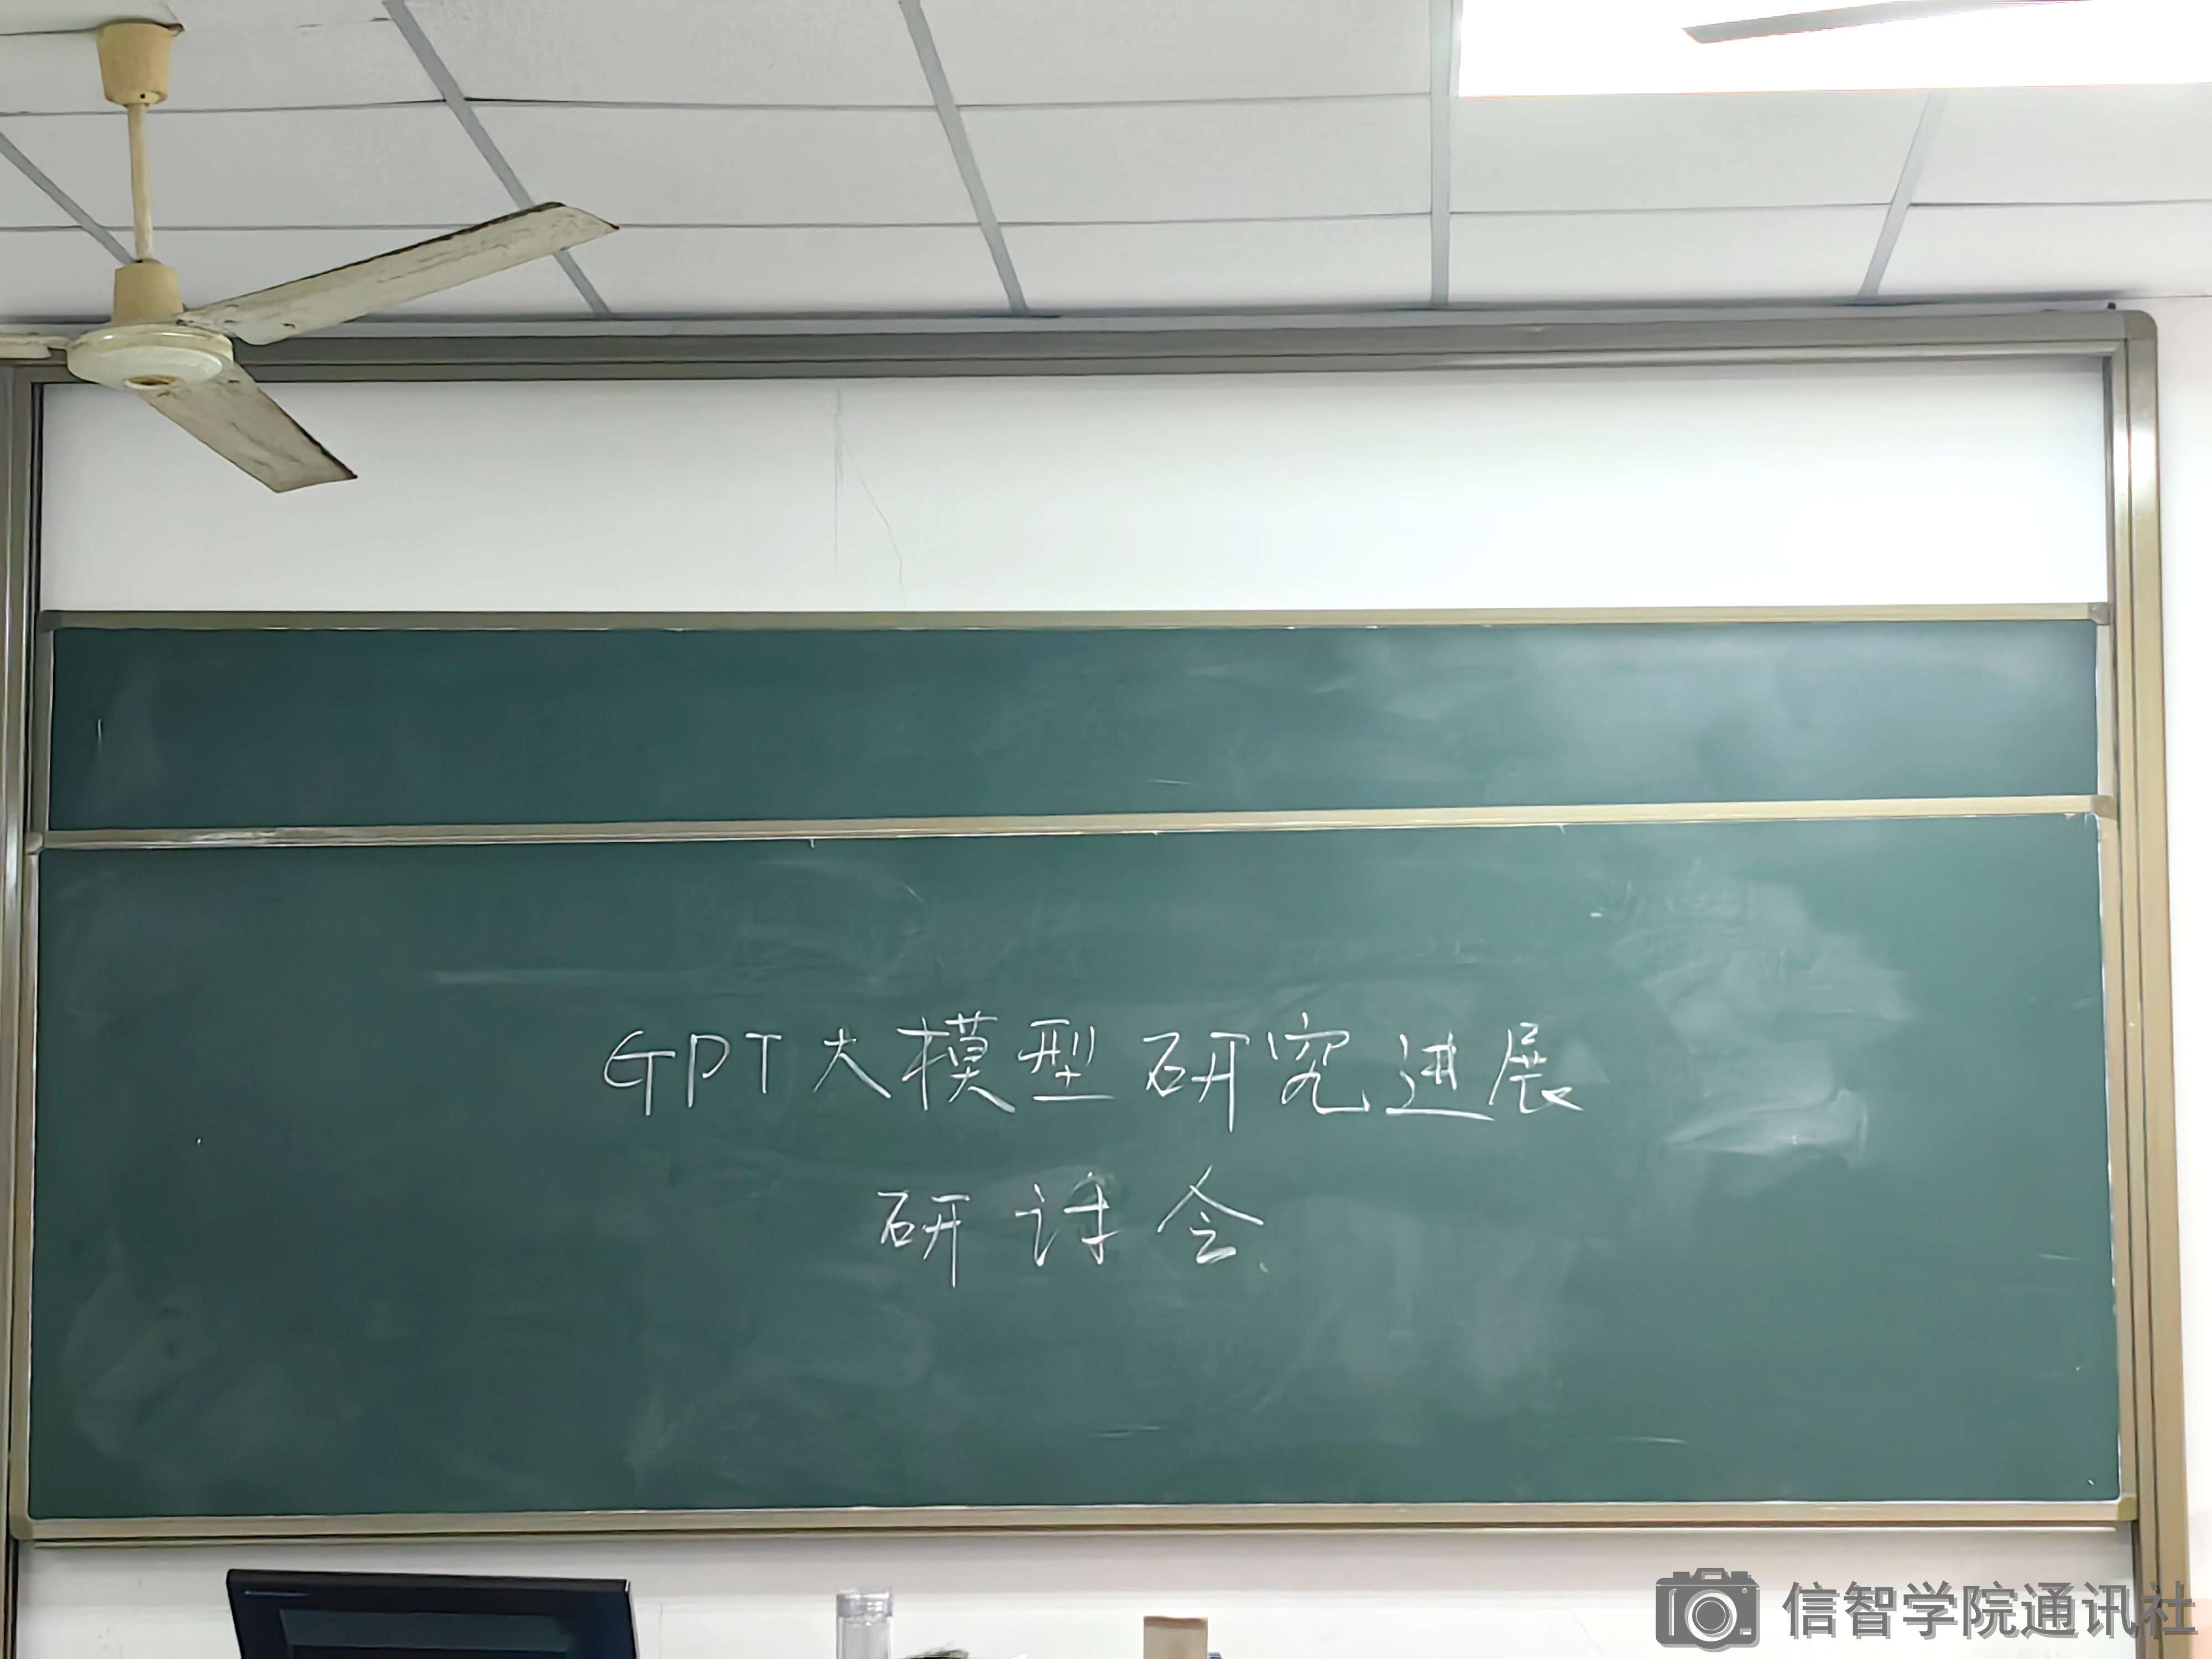 GPT大模型研究进展
研讨会
信智学院通讯社